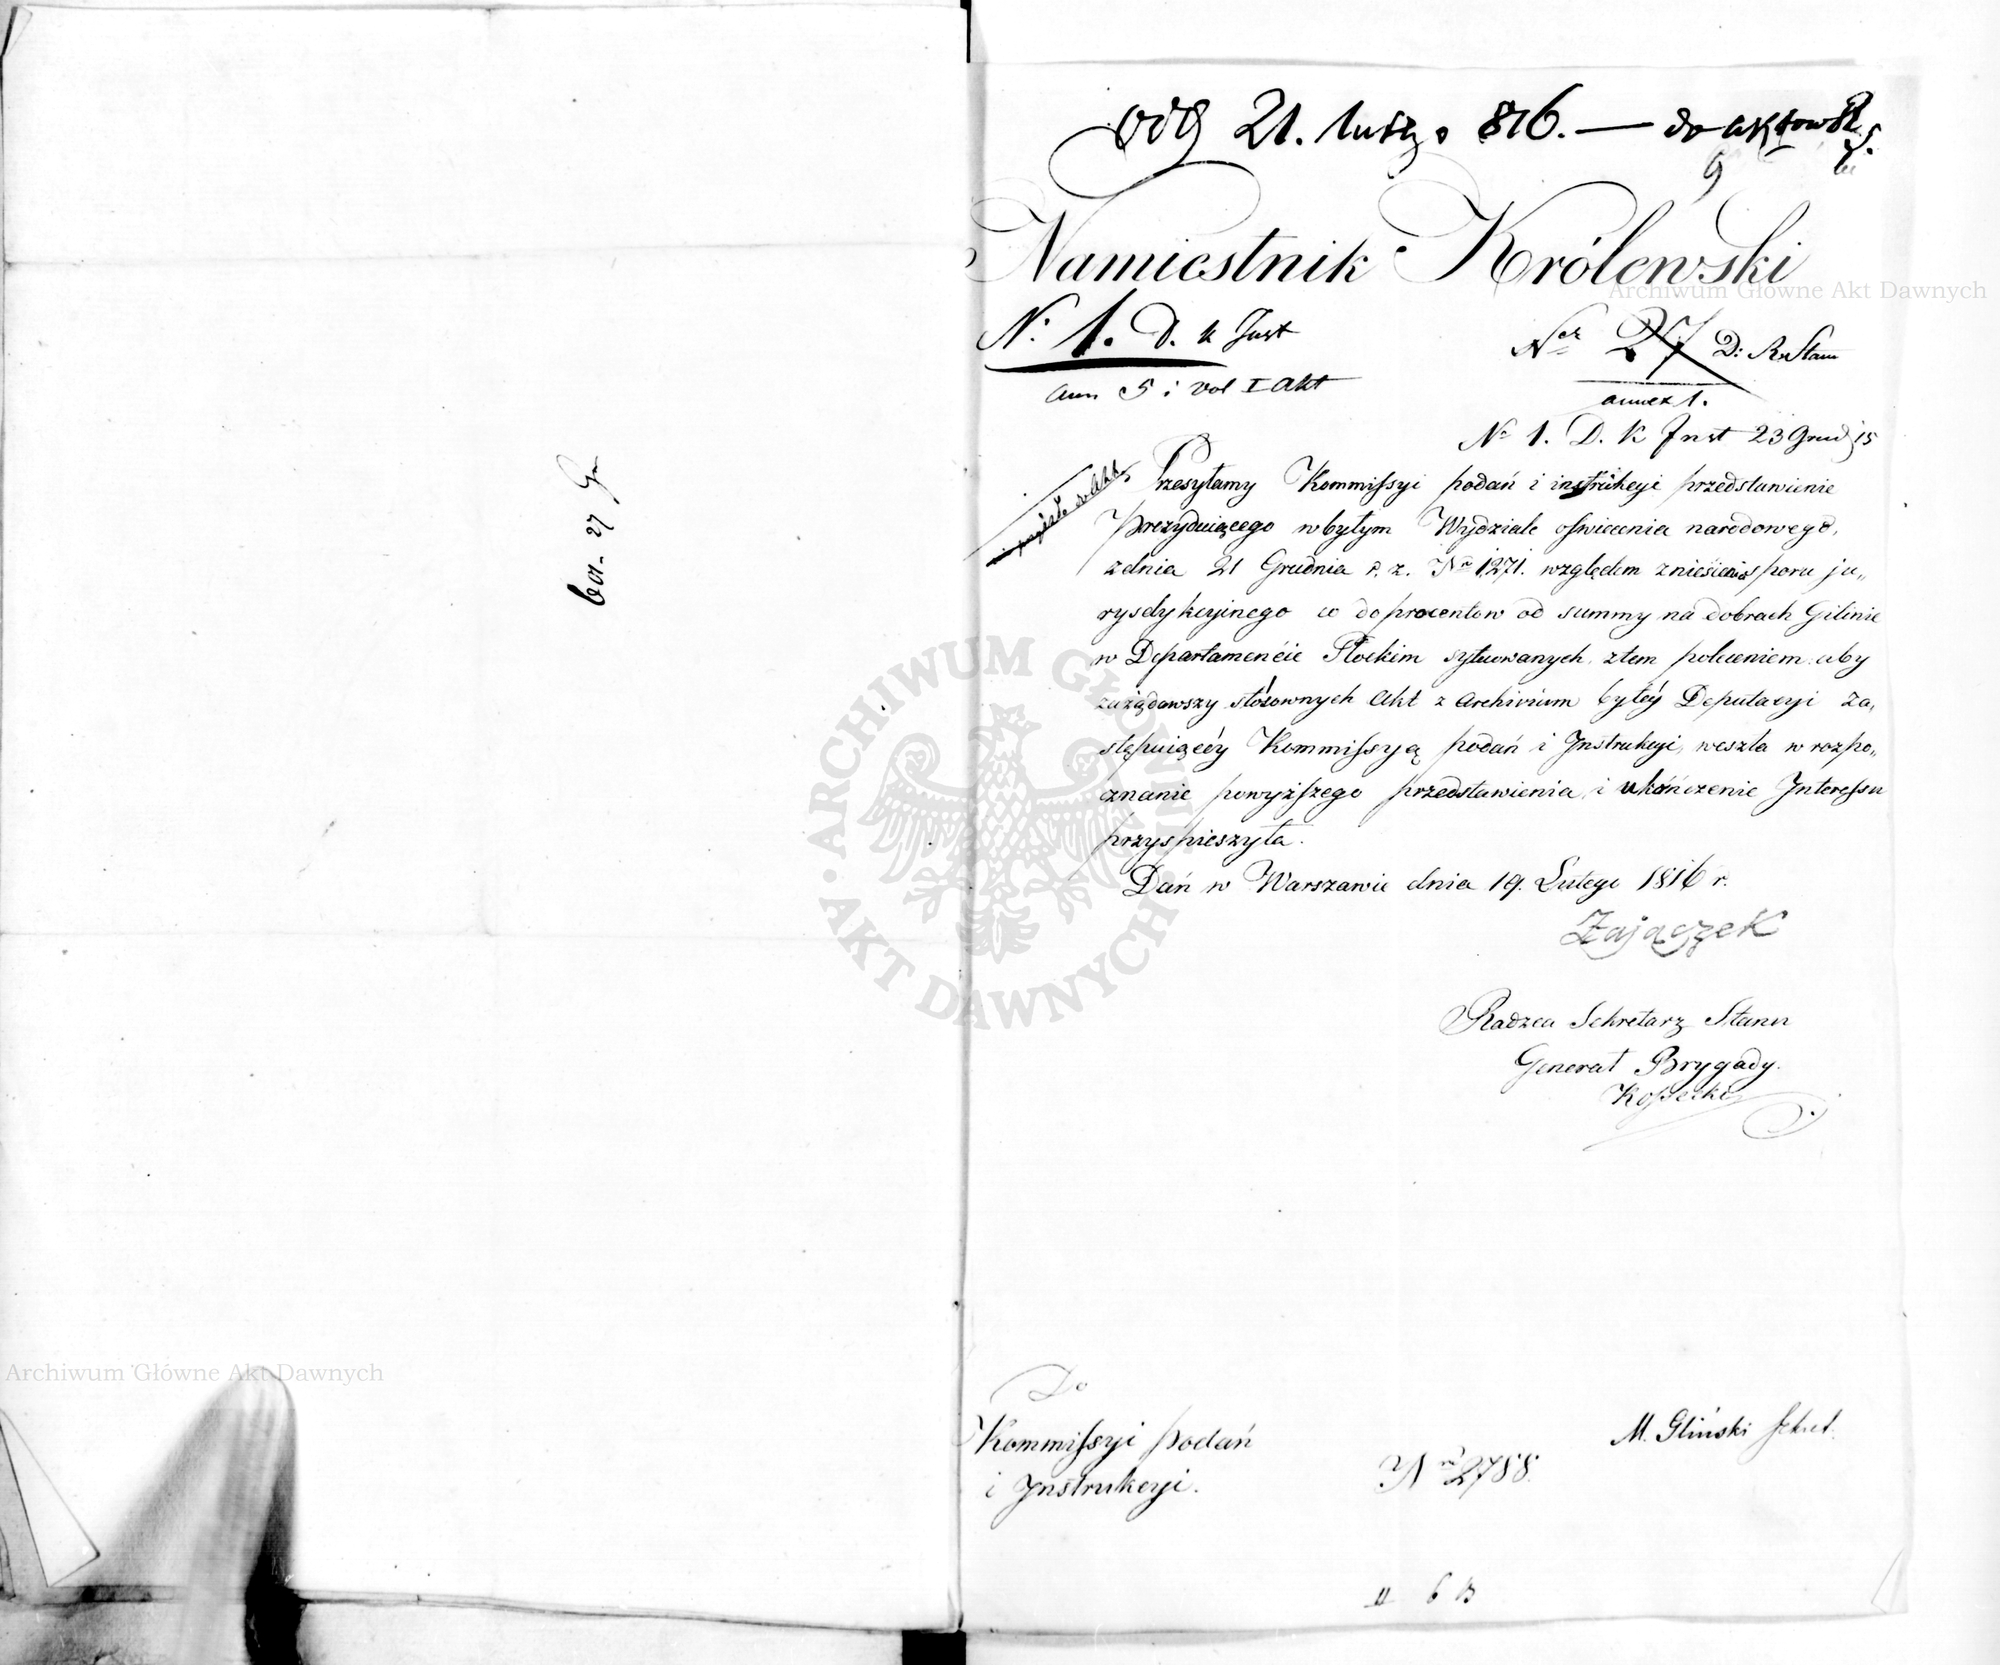 ba. 27 Gr
odd 21. lutego 816. — do aktow
9
Namiestnik Królewski
Archiwum Główne Akt Dawnych
N. 1. D. k Just
Ner 27 D: R. Stanu
ann 5 i vol I akt
annex 1.
No 1. D. K Inst 23 Grud 15
Przesyłamy Kommissyi podań i instrukcyi przedstawienie
Prezyduiącego w byłym Wydziale oświecenia narodowego,
z dnia 21 Grudnia r. z. Nro 1271. względem zniesienia sporu ju„
rysdykcyinego co do procentow od summy na dobrach Gilinie
w Departamencie Płockim sytuowanych, z tem poleceniem. aby
zażądawszy stósownych Akt z Archivium byłéy Deputacyi za„
stępuiącéy Kommissyą podań i Instrukcyi, weszła w rozpo„
znanie powyższego przedstawienia, i ukończenie Interessu
przyspieszyła.
Dań w Warszawie dnia 19. Lutego 1816 r.
Zajączek
Radzca Sekretarz Stanu
Generał Brygady.
Kossecki
ARCHIWUM GŁÓWNE AKT DAWNYCH
Archiwum Główne Akt Dawnych
Do
Kommissyi podań
i Instrukcyi.
M. Gliński Sekret.
Nro 2788.
6 B